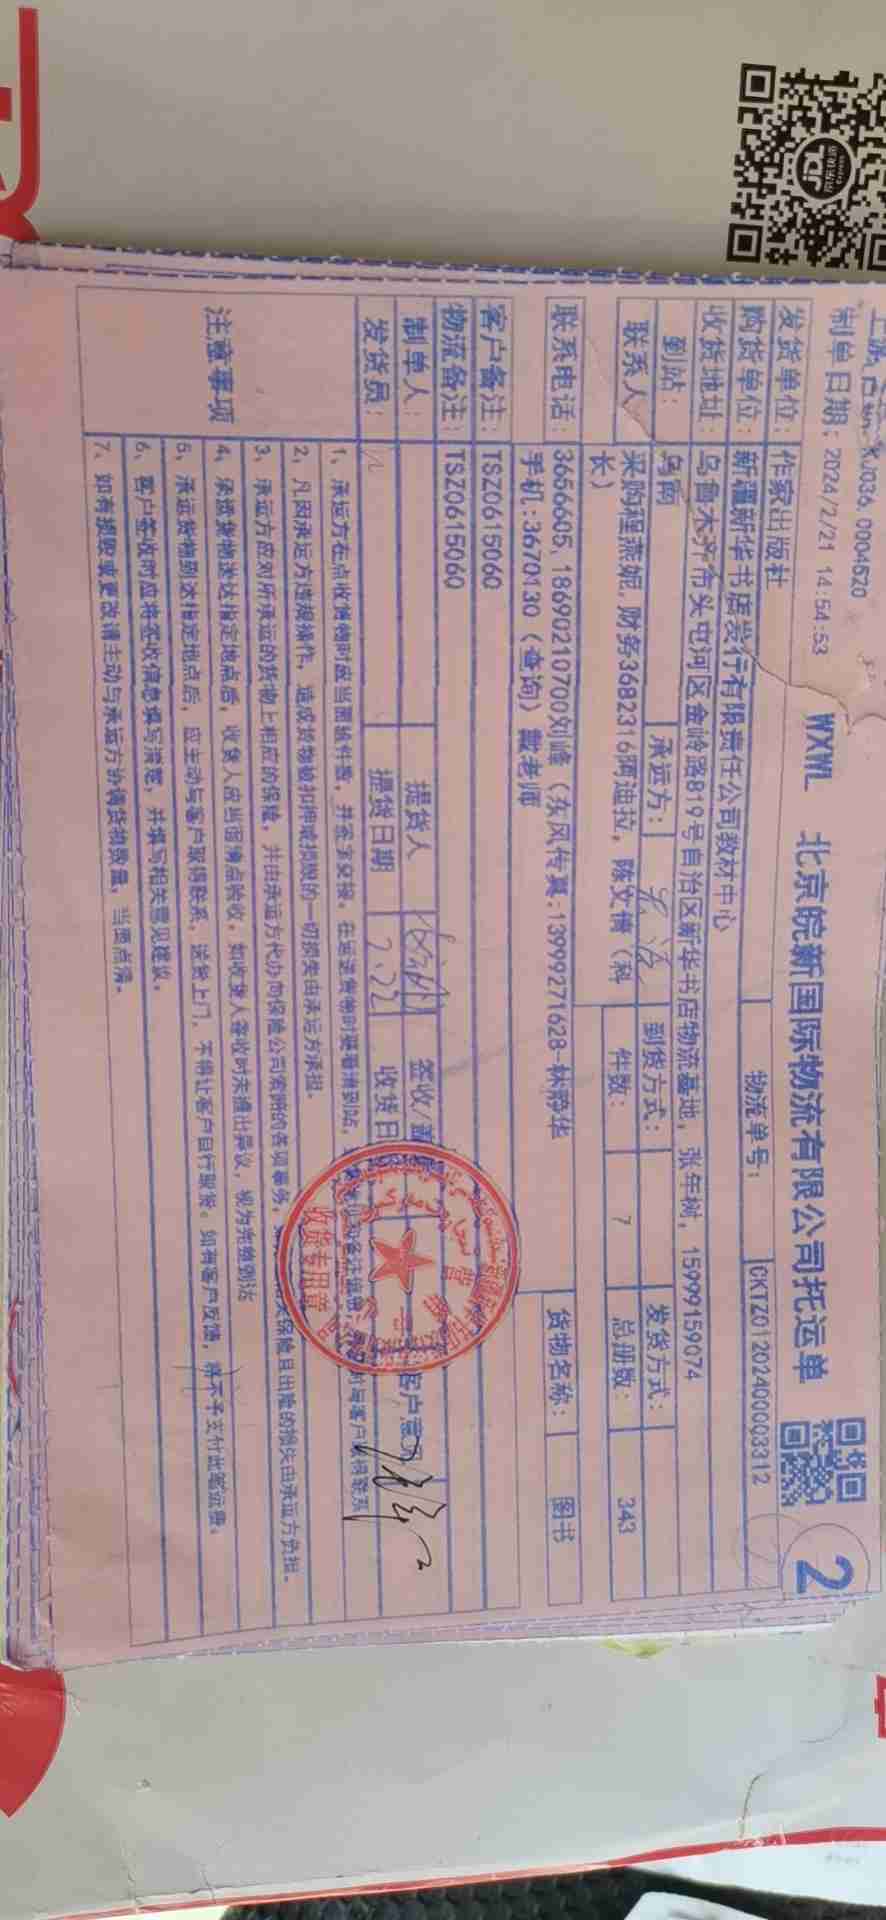 JDL
京东快递
0004520
制单日期：2024/2/21 14:54:53
WXWL 北京皖新国际物流有限公司托运单
2
发货单位：作家出版社
物流单号：CKTZ0120240003312
购货单位：新疆新华书店发行有限责任公司教材中心
收货地址：乌鲁木齐市头屯河区金岭路819号自治区新华书店物流基地，张年树，15999159074
到站：乌南 承运方： 到货方式： 发货方式：
联系人 采购程燕妮，财务3682316阿迪拉，陈文倩（科长）
件数：7 总册数：343
联系电话：3656605，18690210700刘峰（东风传真：13999927628-林静华
手机：3670130（查询）戴老师
货物名称：图书
客户备注：TSZ0615060
物流备注：TSZ0615060
制单人： 提货人 签收/盖 客户意见
发货员： 提货日期 2.22 收货日
注意事项
1、承运方在点收货物时应当面给件数，并签字交接。在运送货物时要看清到站，
时与客户取得联系
2、凡因承运方违规操作，造成货物被扣押或损毁的一切损失由承运方承担。
3、承运方应对所承运的货物上相应的保险，并由承运方代办向保险公司索赔的各项事务，
保险且出险的损失由承运方负担。
4、承运货物送达指定地点后，收货人应当面清点验收，如收货人签收时未提出异议，视为完整到达
5、承运货物到达指定地点后，应主动与客户取得联系，送货上门，不得让客户自行卸货。如有客户反馈，将不予支付此笔运费。
6、客户签收时应将签收信息填写清楚，并填写相关意见建议。
7、如有损毁或更改请主动与承运方协调货物数量，当面点清。
收货专用章